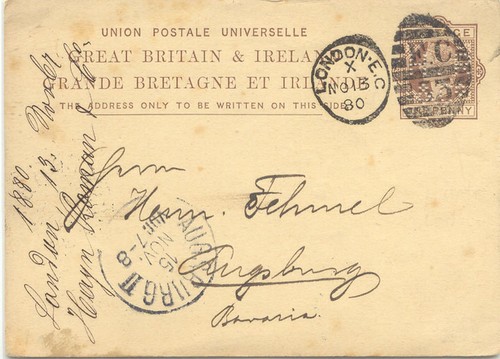 UNION POSTALE UNIVERSELLE
GREAT BRITAIN & IRELAND
GRANDE BRETAGNE ET IRLANDE
THE ADDRESS ONLY TO BE WRITTEN ON THIS SIDE.
LONDON·E.C
X
NO 13
80
E.C
POSTAGE
ONE PENNY
Herrn
Herm. Fehmel
Augsburg
Bavaria.
AUGSBURG II
15
NOV
7-8
London 13. Novbr
1880
Roman & Co